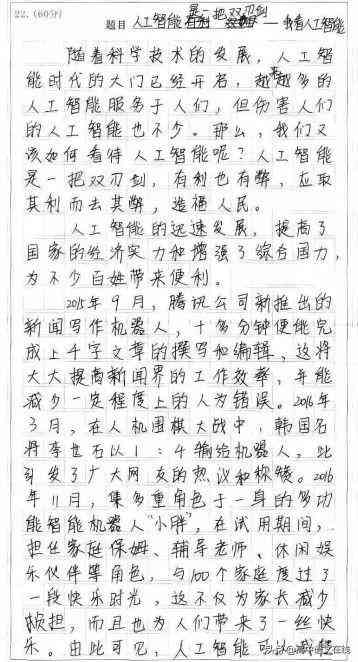 22.(60分)
是一把双刃剑
题目 人工智能有利 — 我看人工智能
随着科学技术的发展，人工智
能时代的大门已经开启，越来越多的
人工智能服务于人们，但伤害人们
的人工智能也不少。那么，我们又
该如何看待人工智能呢？人工智能
是一把双刃剑，有利也有弊，应取
其利而去其弊，造福人民。
人工智能的迅速发展，提高了
国家的经济实力和增强了综合国力，
为不少百姓带来便利。
2015年9月，腾讯公司新推出的
新闻写作机器人，十多分钟便能完
成上千字文章的撰写和编辑，这将
大大提高新闻界的工作效率，并能
减少一定程度上的人为错误。2016年
3月，在人机围棋大战中，韩国名
将李世石以1：4输给机器人，此
引发了广大网友的热议和称赞。2016
年11月，集多重角色于一身的多功
能智能机器人“小胖”，在试用期间，
担任家庭保姆、辅导老师、休闲娱
乐伙伴等角色，与100个家庭度过了
一段快乐时光，这不仅为家长减少
烦担，而且也为人们带来了一丝快
乐。由此可见，人工智能可以减轻